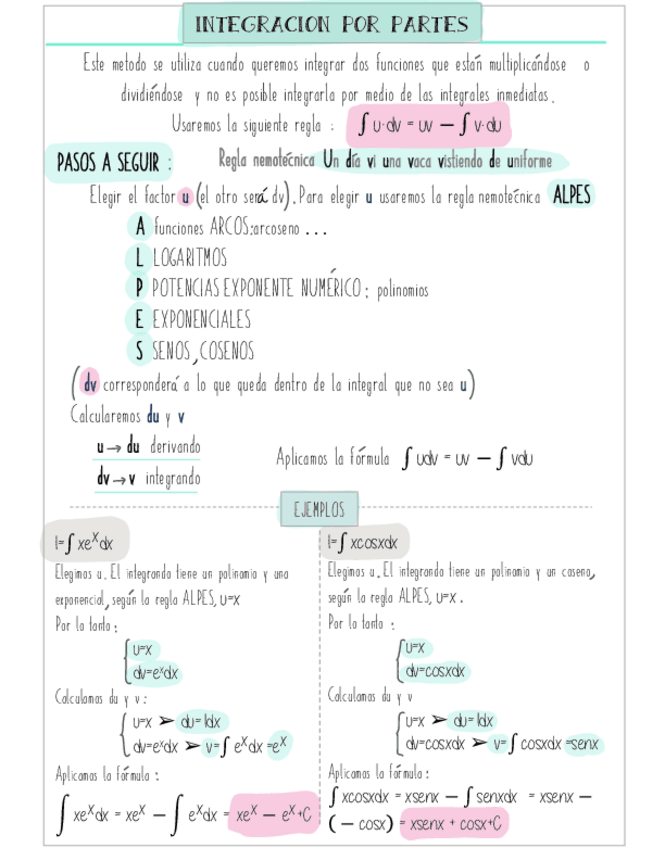 INTEGRACION POR PARTES
Este metodo se utiliza cuando queremos integrar dos funciones que están multiplicándose o
dividiéndose y no es posible integrarla por medio de las integrales inmediatas.
Usaremos la siguiente regla : ∫ u·dv = uv — ∫ v·du
PASOS A SEGUIR : Regla nemotécnica Un día vi una vaca vistiendo de uniforme
Elegir el factor u (el otro será dv). Para elegir u usaremos la regla nemotécnica ALPES
A funciones ARCOS:arcoseno ...
L LOGARITMOS
P POTENCIAS EXPONENTE NUMÉRICO : polinomios
E EXPONENCIALES
S SENOS, COSENOS
(dv corresponderá a lo que queda dentro de la integral que no sea u)
Calcularemos du y v
u → du derivando
dv → v integrando
Aplicamos la fórmula ∫ udv = uv — ∫ vdu
EJEMPLOS
I=∫ xeˣdx
Elegimos u. El integrando tiene un polinomio y una
exponencial, según la regla ALPES, u=x
Por lo tanto :
u=x
dv=eˣdx
Calculamos du y v :
u=x ➤ du=1dx
dv=eˣdx ➤ v=∫ eˣdx =eˣ
Aplicamos la fórmula :
∫ xeˣdx = xeˣ — ∫ eˣdx = xeˣ — eˣ+C
I=∫ xcosxdx
Elegimos u. El integrando tiene un polinomio y un coseno,
según la regla ALPES, u=x .
Por lo tanto :
u=x
dv=cosxdx
Calculamos du y v
u=x ➤ du=1dx
dv=cosxdx ➤ v=∫ cosxdx =senx
Aplicamos la fórmula :
∫ xcosxdx = xsenx — ∫ senxdx = xsenx —
( — cosx) = xsenx + cosx+C